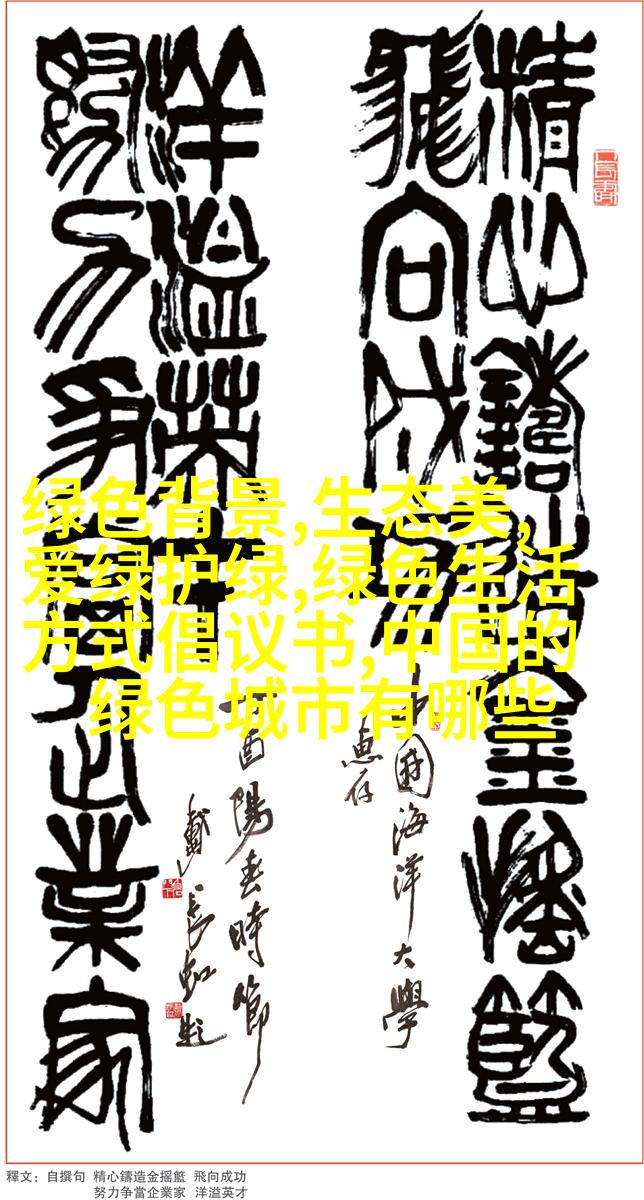 精心鑄造金摇籃
飛向成功
中國海洋大學
惠存
洋溢英才
努力争當企業家
丁酉陽春時節
戴長虹題
绿色背景,生态美,
爱绿护绿,绿色生活
方式倡议书,中国的
绿色城市有哪些
釋文：自撰句 精心鑄造金摇籃 飛向成功
努力争當企業家 洋溢英才